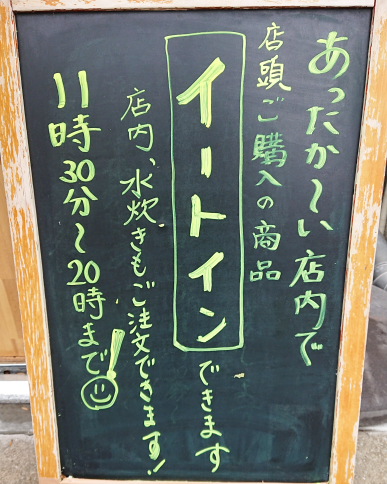 あったか〜い店内で
店頭ご購入の商品
イートインできます
店内、水炊きもご注文できます!
11時30分〜20時まで!